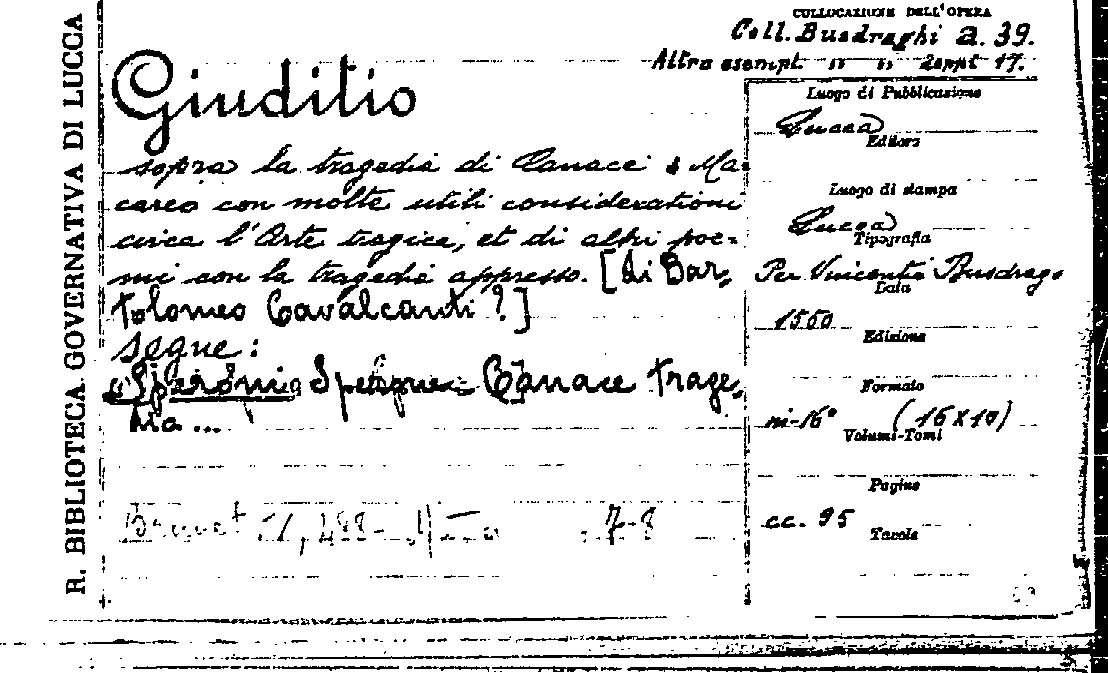 R. BIBLIOTECA GOVERNATIVA DI LUCCA
COLLOCAZIONE DELL'OPERA
Coll. Busdraghi a. 39.
Altro esempl. " " 2appt 17.
Giuditio
sopra la tragedia di Canace & Ma-
careo con molte utili considerationi
circa l'Arte tragica, et di altri poe-
mi con la tragedia appresso. [di Bar-
tolomeo Cavalcanti?]
segue:
Canace Trage-
dia ...
7-8
Luogo di Pubblicazione
Lucca
Editore
Luogo di stampa
Lucca
Tipografia
Per Vincentio Busdrago
Data
1550
Edizione
Formato
in-16° (16 x 10)
Volumi-Tomi
Pagine
cc. 95
Tavole